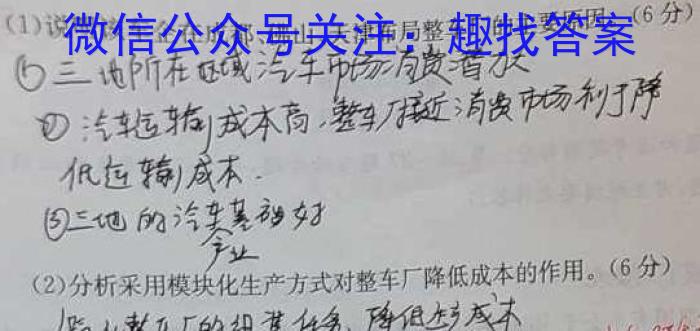 (1)说 企 在成都、佛山、天津布局整车厂的主要原因。(6分)
微信公众号关注：趣找答案
①三地所在区域汽车市场消费潜力
②汽车运输成本高,整车厂接近消费市场利于降
低运输成本.
③三地的汽车基础好
产业
(2)分析采用模块化生产方式对整车厂降低成本的作用。(6分)
整车厂的组装任务,降低生产成本